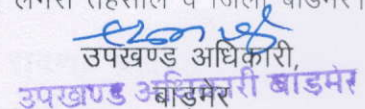 तहसील व जिला बाडमेर।
उपखण्ड अधिकारी,
बाडमेर
उपखण्ड अधिकारी बांडमेर